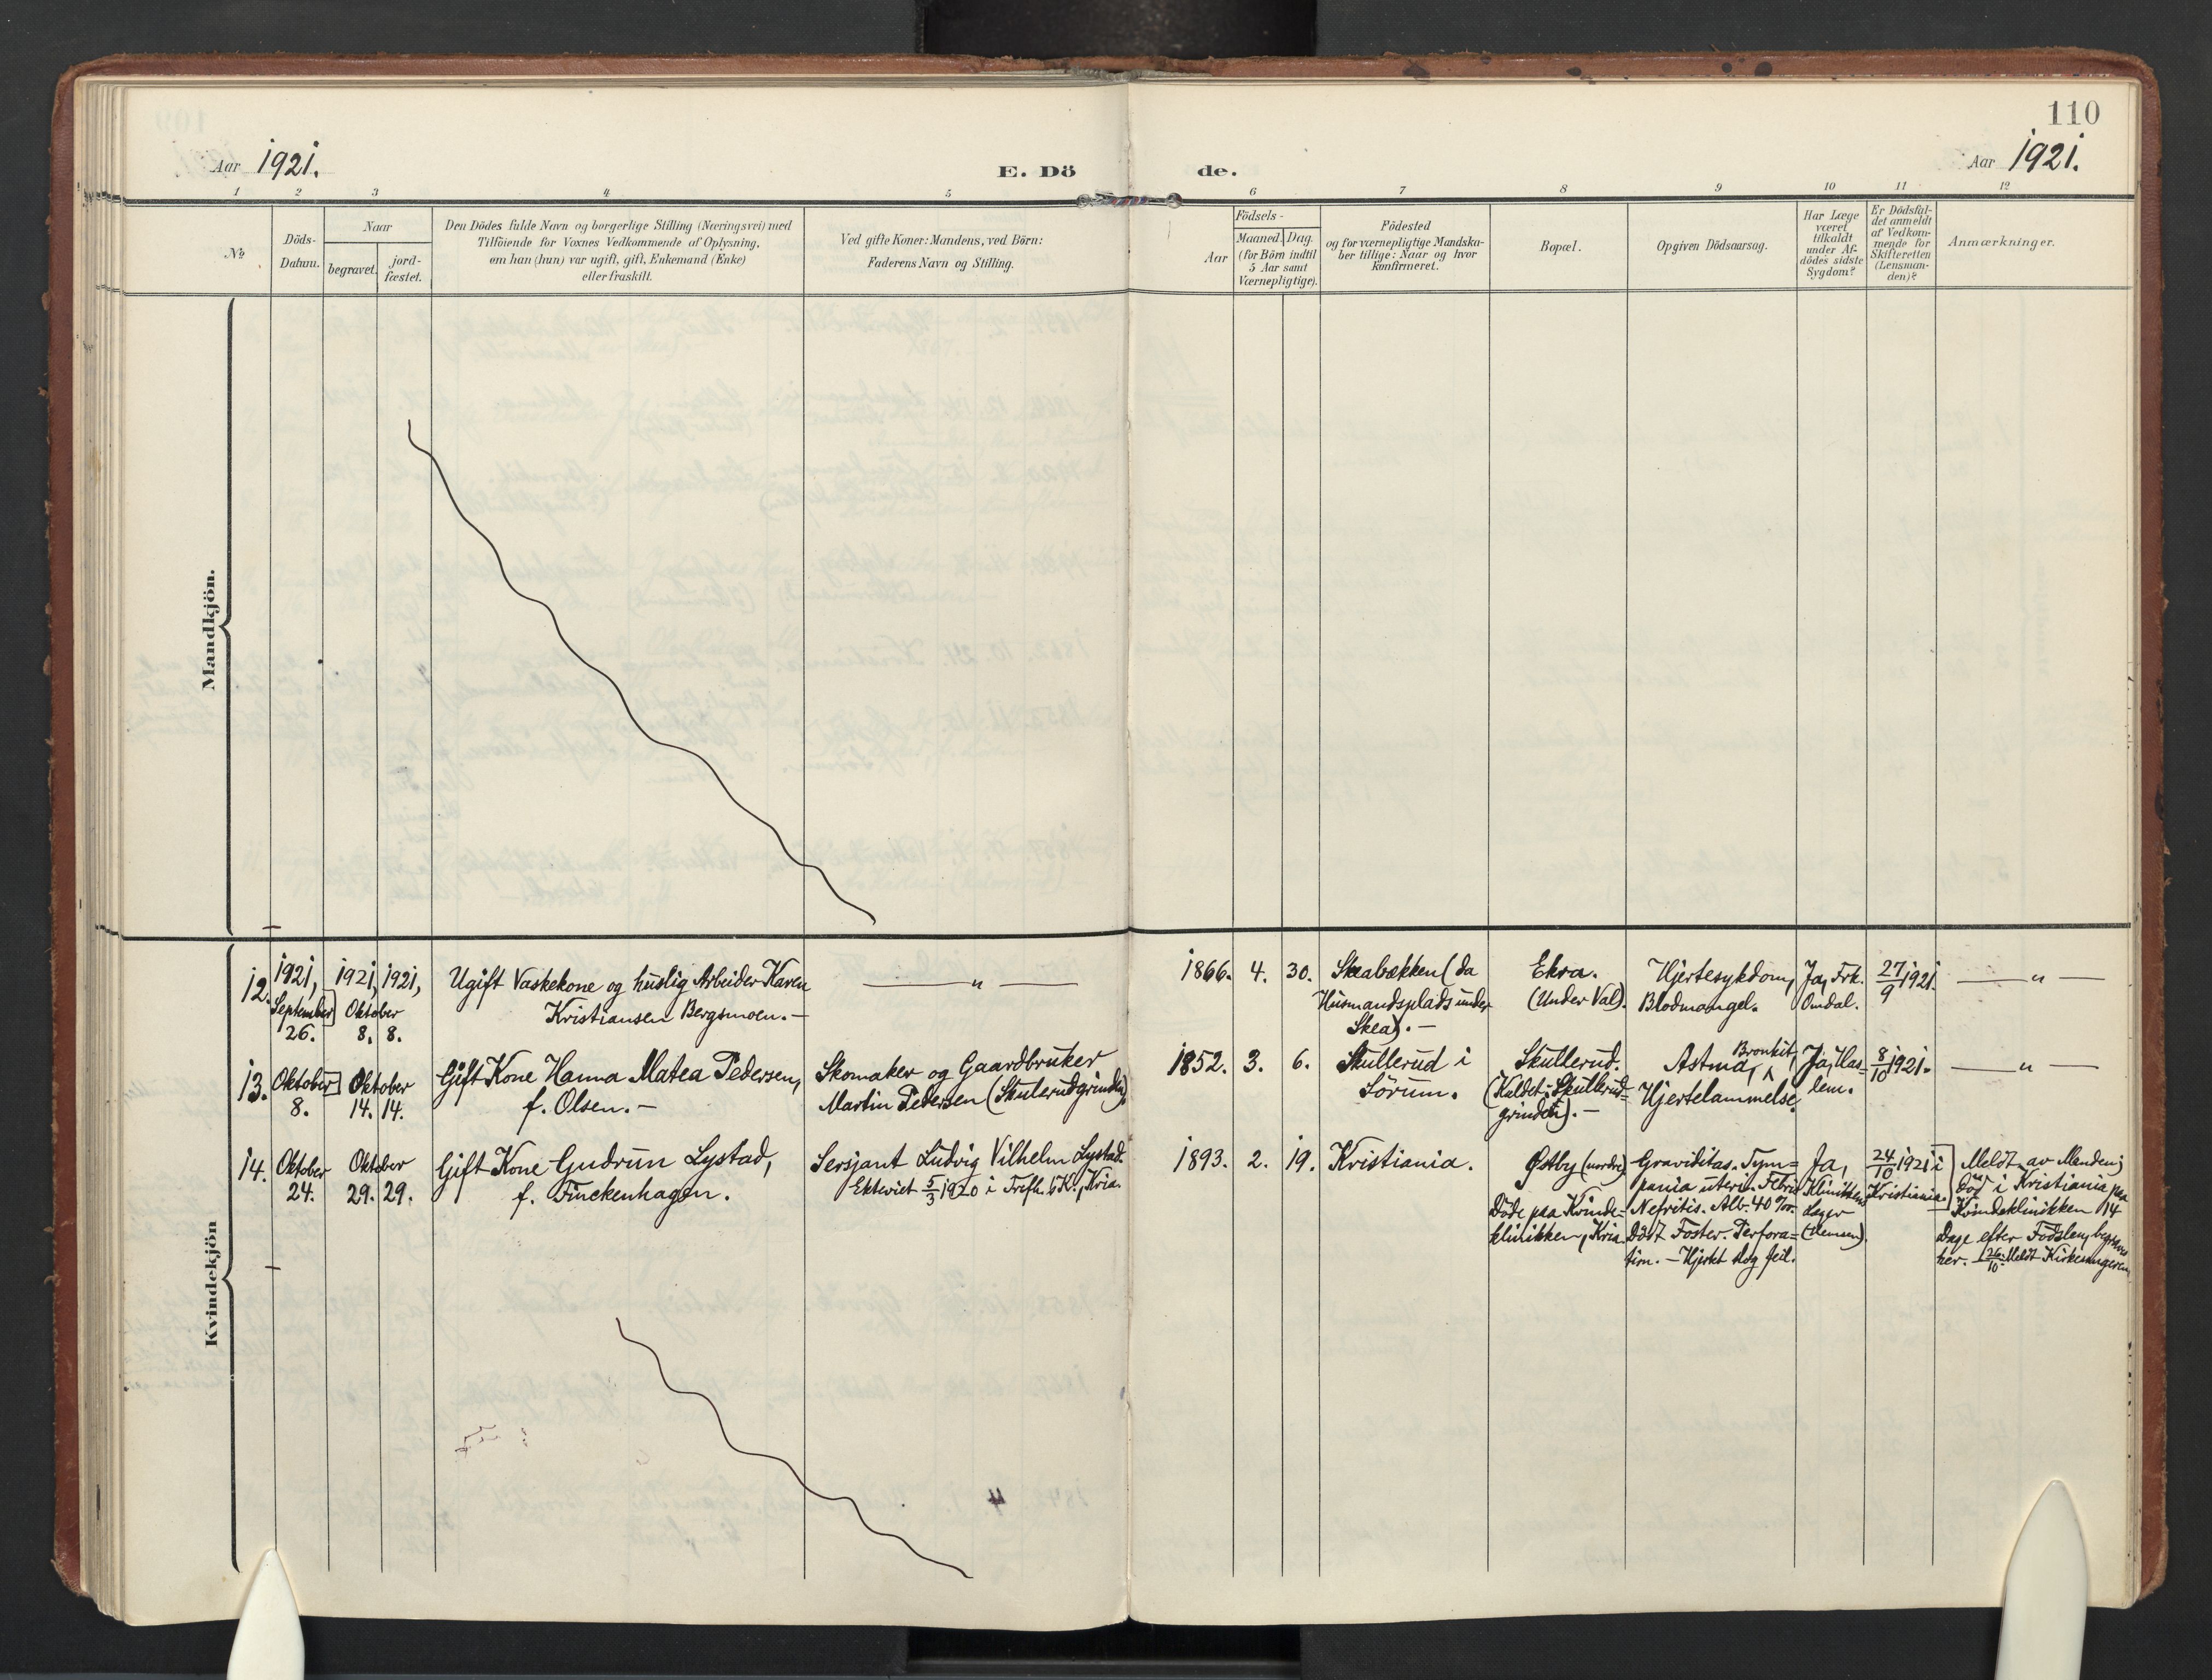 110
Aar 1921.
E. Dö de.
Aar 1921.
1 2 3 4 5 6 7 8 9 10 11 12
No
Döds-
Datum.
Naar
begravet.
jord-
fæstet.
Den Dödes fulde Navn og borgerlige Stilling (Næringsvei) med
Tilföiende for Voxnes Vedkommende af Oplysning,
om han (hun) var ugift, gift, Enkemand (Enke)
eller fraskilt.
Ved gifte Koner: Mandens, ved Börn:
Faderens Navn og Stilling.
Födsels-
Aar
Maaned. Dag.
(for Börn indtil
5 Aar samt
Værnepligtige).
Födested
og for værnepligtige Mandska-
ber tillige: Naar og hvor
konfirmeret.
Bopæl.
Opgiven Dödsaarsag.
Har Læge
været
tilkaldt
under Af-
dödes sidste
Sygdom?
Er Dödsfal-
det anmeldt
af Vedkom-
mende for
Skifteretten
(Lensman-
den)?
Anmærkninger.
Mandkjön.
Kvindekjön
12.
1921,
September
26.
1921, 1921,
Oktober
8. 8.
Ugift Vaskekone og huslig Arbeider Karen
Kristiansen Bergsmoen. —
— " —
1866. 4. 30.
Skeabækken (da
Husmandsplads under
Skea). —
Ekra.
(Under Val).
Hjertesykdom,
Blodmangel.
Ja, Frk.
Omdal.
27/9 1921.
— " —
13.
Oktober
8.
Oktober
14. 14.
Gift Kone Hanna Matea Pedersen,
f. Olsen. —
Skomaker og Gaardbruker
Martin Pedersen (Skulerudgrinden).
1852. 3. 6.
Skullerud i
Sörum.
Skullerud.
(Kaldet: Skullerud-
grinden). —
Bronkit,
Astma,
Hjertelammelse.
Ja, Has-
lem.
8/10 1921.
— " —
14.
Oktober
24.
Oktober
29. 29.
Gift Kone Gudrun Lystad,
f. Finckenhagen.
Sersjant Ludvig Vilhelm Lystad.
Ektviet 5/3 1920 i Trefh. K., Kria.
1893. 2. 19.
Kristiania.
Østby (nordre)
Döde paa Kvinde-
klinikken, Kria.
Graviditas. Tym-
pania uteri. Febris
Nefritis. Alb. 40 %.
Dödt Foster. Perfora-
tion. — Hjertet slog feil.
Ja,
Klinikkens
Læger
24/10 1921 i
Kristiania.
Meldt av Manden;
död i Kristiania paa
Kvindeklinikken 14
Dage efter Födslen, begraves
her. 26/10. Meldt Kirkesangeren.